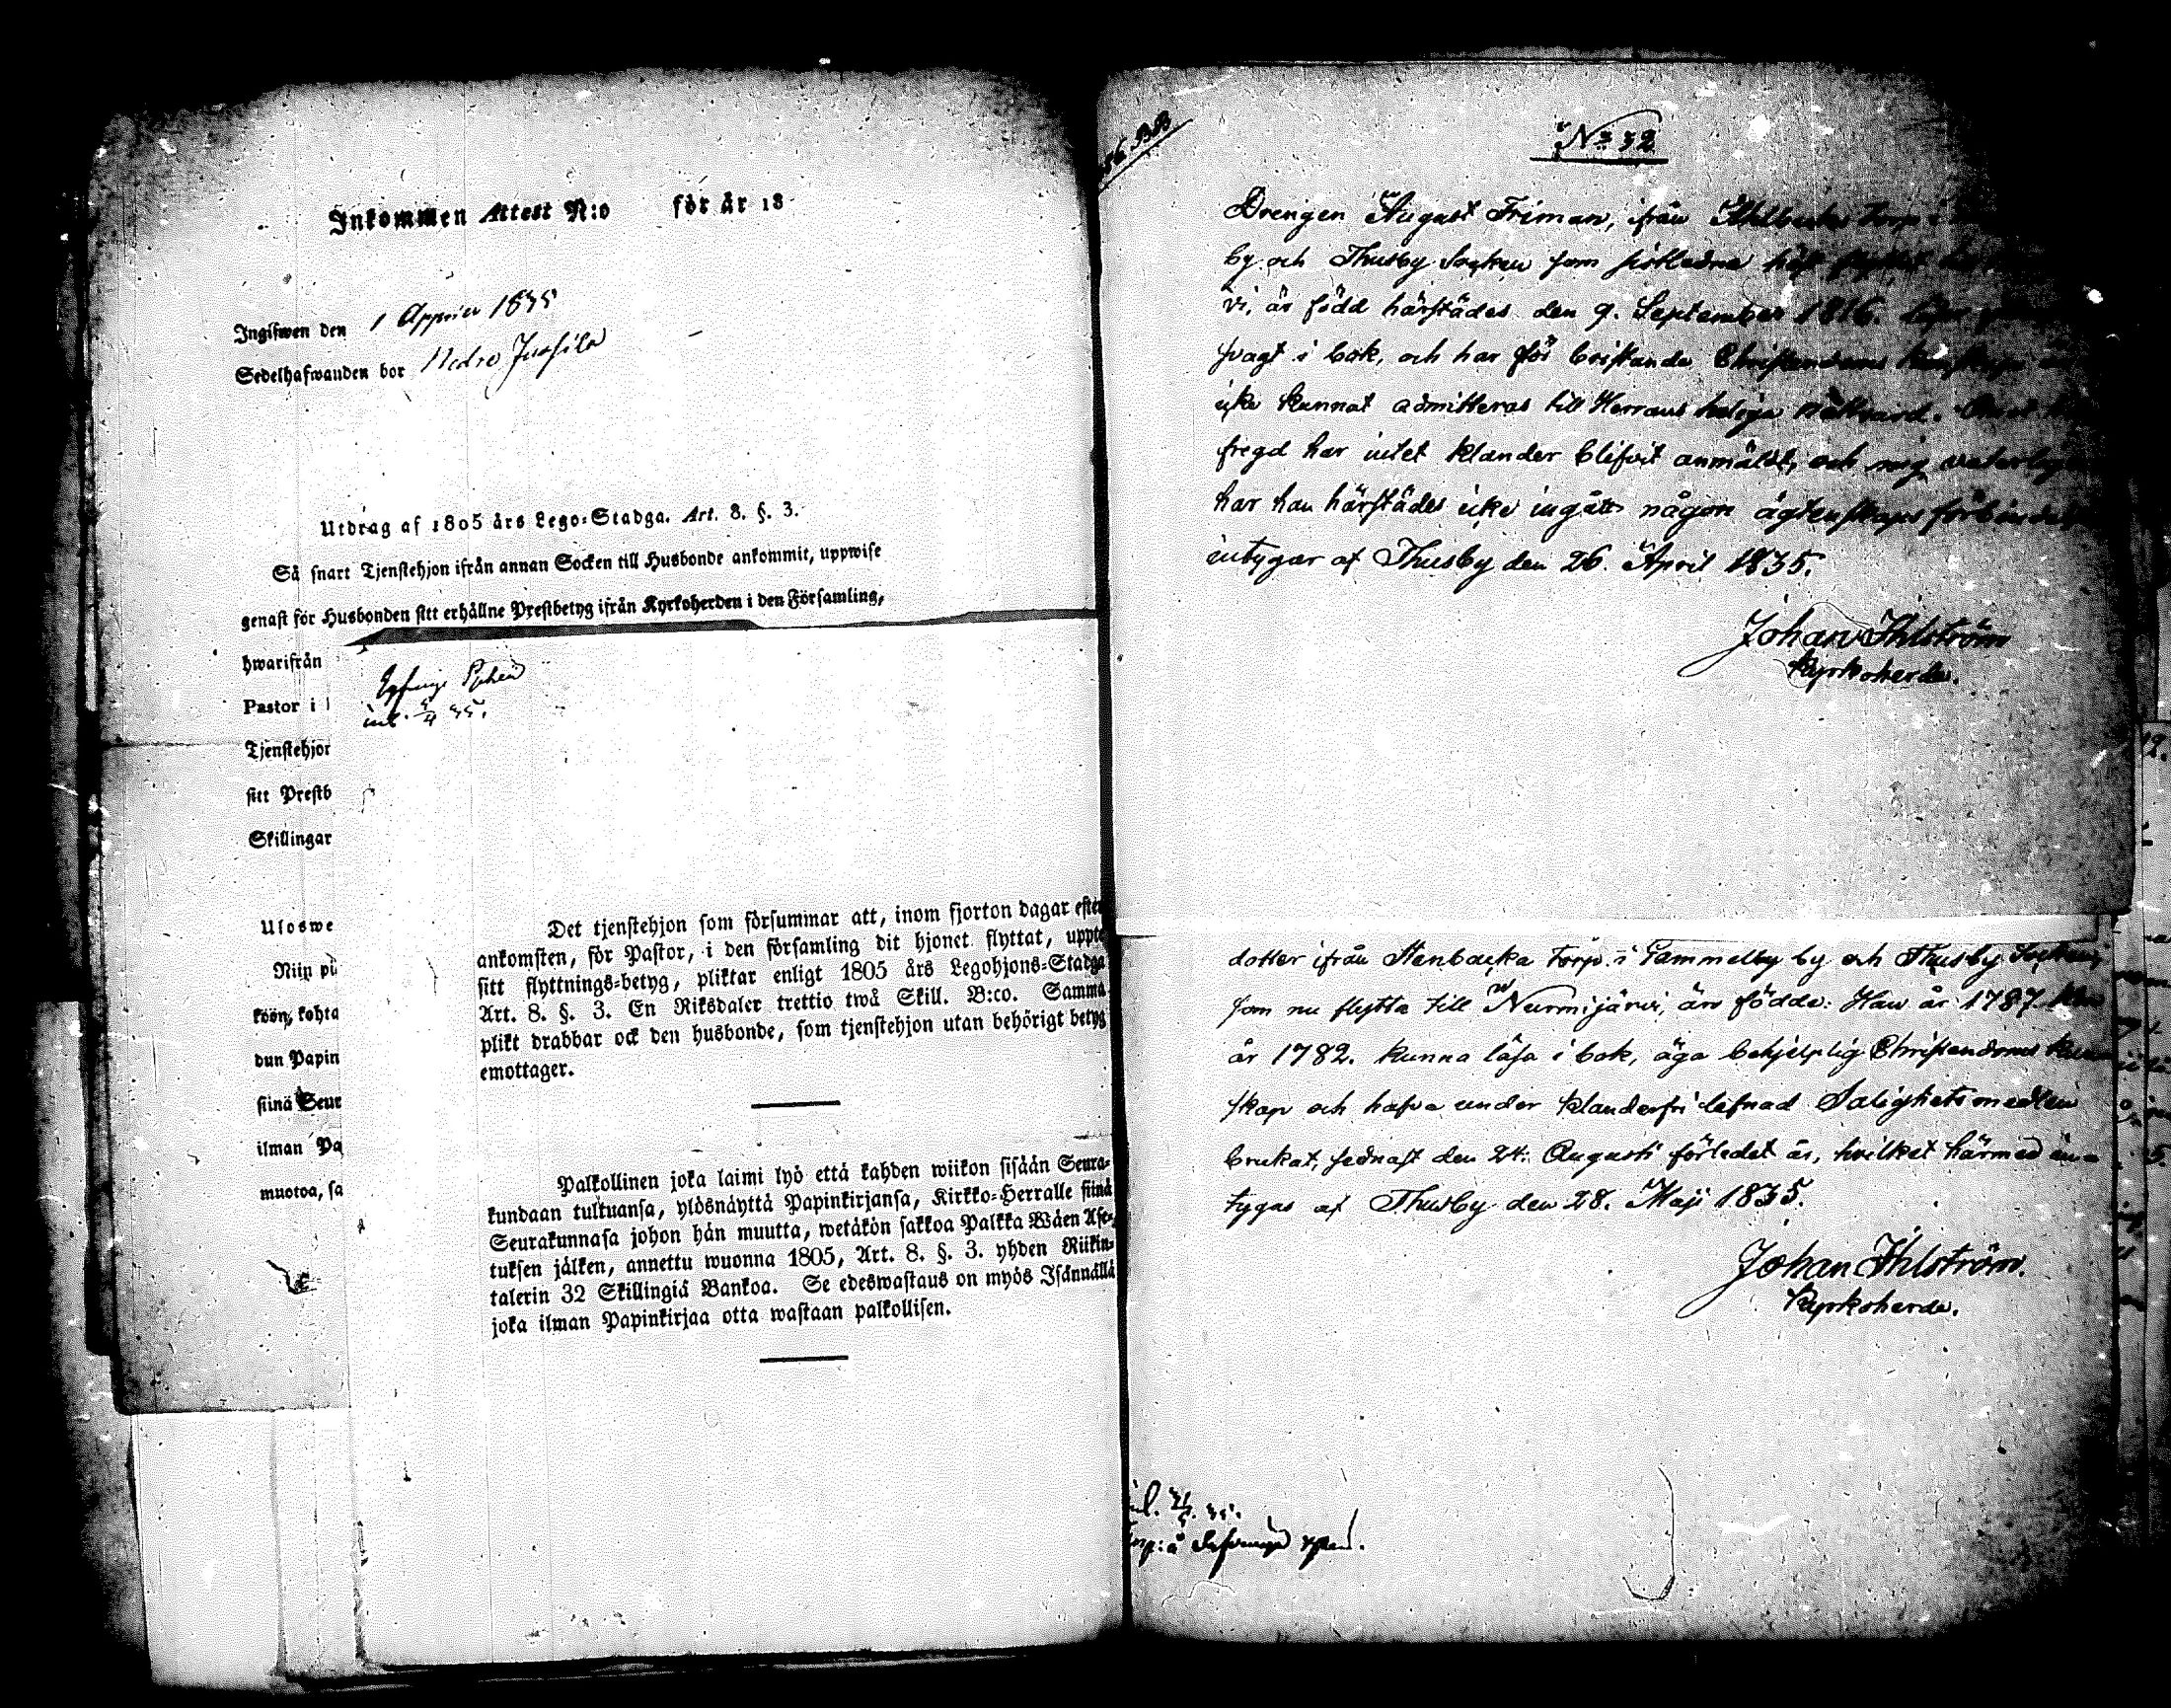 Inkommen Attest N:o för år 18
Ingifwen den 1 Appriv 1835
Sedelhafwanden bor Nedro Jussila
Utdrag af 1805 års Lego-Stadga. Art. 8. §. 3.
Så snart Tjenstehjon ifrån annan Socken till Husbonde ankommit, uppwise
genast för Husbonden sitt erhållne Prestbetyg ifrån Kyrkoherden i den Församling,
hwarifrån
Pastor i
Tjenstehjor
sitt Prestb
Skillingar
Uloswe
Niin pu
köön, kohta
dun Papin
siinä Seur
ilman Pa
muotoa, sa
inl. 5/4 35.
Det tjenstehjon som försummar att, inom fjorton dagar efter
ankomsten, för Pastor, i den församling dit hjonet flyttat, uppte
sitt flyttnings-betyg, pliktar enligt 1805 års Legohjons-Stadga
Art. 8. §. 3. En Riksdaler trettio twå Skill. B:co. Samma
plikt drabbar ock den husbonde, som tjenstehjon utan behörigt betyg
emottager.
Palkollinen joka laimi lyö että kahden wiikon sisään Seura-
kundaan tultuansa, ylösnäyttä Papinkirjansa, Kirkko-Herralle siinä
Seurakunnasa johon hän muutta, wetäkön sakkoa Palkka Wäen Ase-
tuksen jälken, annettu wuonna 1805, Art. 8. §. 3. yhden Riikin-
talerin 32 Skillingiä Bankoa. Se edeswastaus on myös Isännällä
joka ilman Papinkirjaa otta wastaan palkollisen.
56 BB
No 32
Drengen August Friman, ifrån Torp
by och Thusby Socken som sistledne höst flyttat
vi, är född härstädes den 9. September 1816. läser
svagt i bok, och har för bristande Christendoms kunskap
icke kunnat admitteras till Herrans heliga Nattvard.
fregd har intet klander blifvit anmäldt, och mig veterligen
har han härstädes icke ingått någon ägtenskaps förbindelse
intygar af Thusby den 26. April 1835.
Johan Ihlström
Kyrkoherde.
dotter ifrån Stenbacka torp i Gammelby by och Thusby Socken,
som nu flytta till Nurmijärvi, äro födde: Han år 1787. Hon
år 1782. kunna läsa i bok, äga behjelplig Christendoms kunn
skap och hafva under klanderfri lefnad Salighetsmedlen
brukat, sednast den 24. Augusti förledet år, hvilket härmed in-
tygas af Thusby den 28. Maji 1835.
Johan Ihlström.
Kyrkoherde.